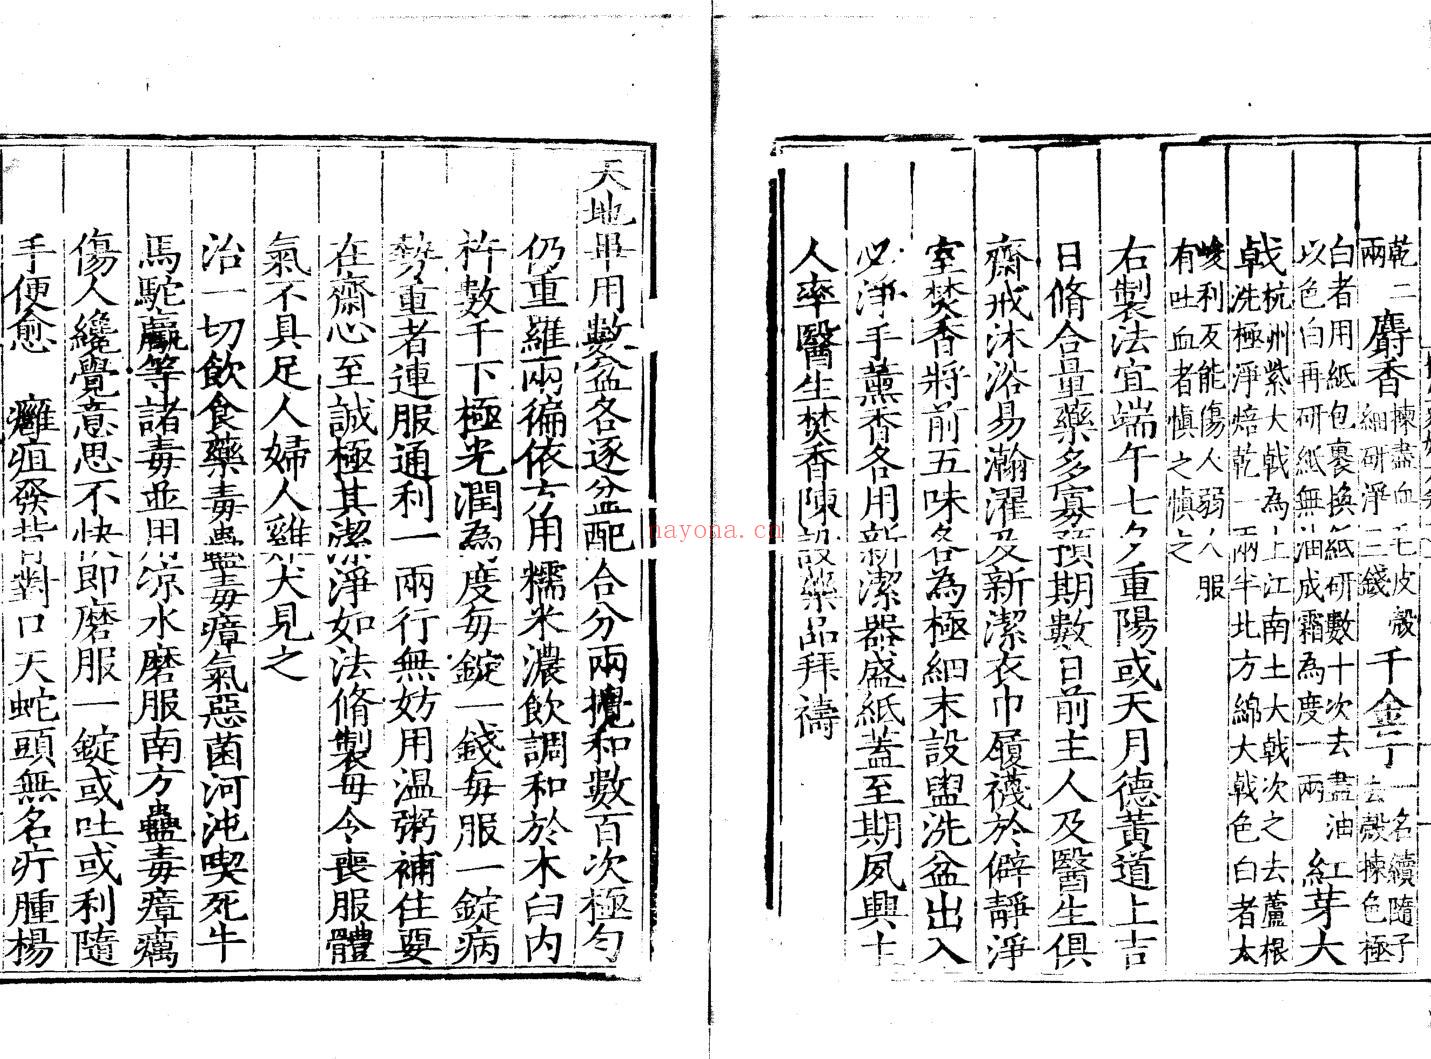 乾二兩麝香揀盡血毛皮殼細研淨三錢千金子一名續隨子去殼揀色極
白者用紙包裹換紙研數十次去盡油以色白再研紙無油成霜為度一兩紅芽大
戟杭州紫大戟為上江南土大戟次之去蘆根洗極淨焙乾一兩半北方綿大戟色白者太
峻利反能傷人弱人服有吐血者慎之慎之
右製法宜端午七夕重陽或天月德黃道上吉
日脩合量藥多寡預期數日前主人及醫生俱
齋戒沐浴易瀚濯及新潔衣巾履襪於僻靜淨
室焚香將前五味各為極細末設盥洗盆出入
必淨手薰香各用新潔器盛紙蓋至期夙興主
人率醫生焚香陳設藥品拜禱
天地畢用數盆各逐盆配合分兩攪和數百次極勻
仍重羅兩徧依方用糯米濃飲調和於木臼内
杵數千下極光潤為度每錠一錢每服一錠病
勢重者連服通利一兩行無妨用温粥補住要
在齋心至誠極其潔淨如法脩製毋令喪服體
氣不具足人婦人雞犬見之
治一切飲食藥毒蠱毒瘴氣惡菌河沌喫死牛
馬駝驘等諸毒並用凉水磨服南方蠱毒瘴癘
傷人纔覺意思不快即磨服一錠或吐或利隨
手便愈 癰疽發背對口天蛇頭無名疔腫楊
nayona.cn